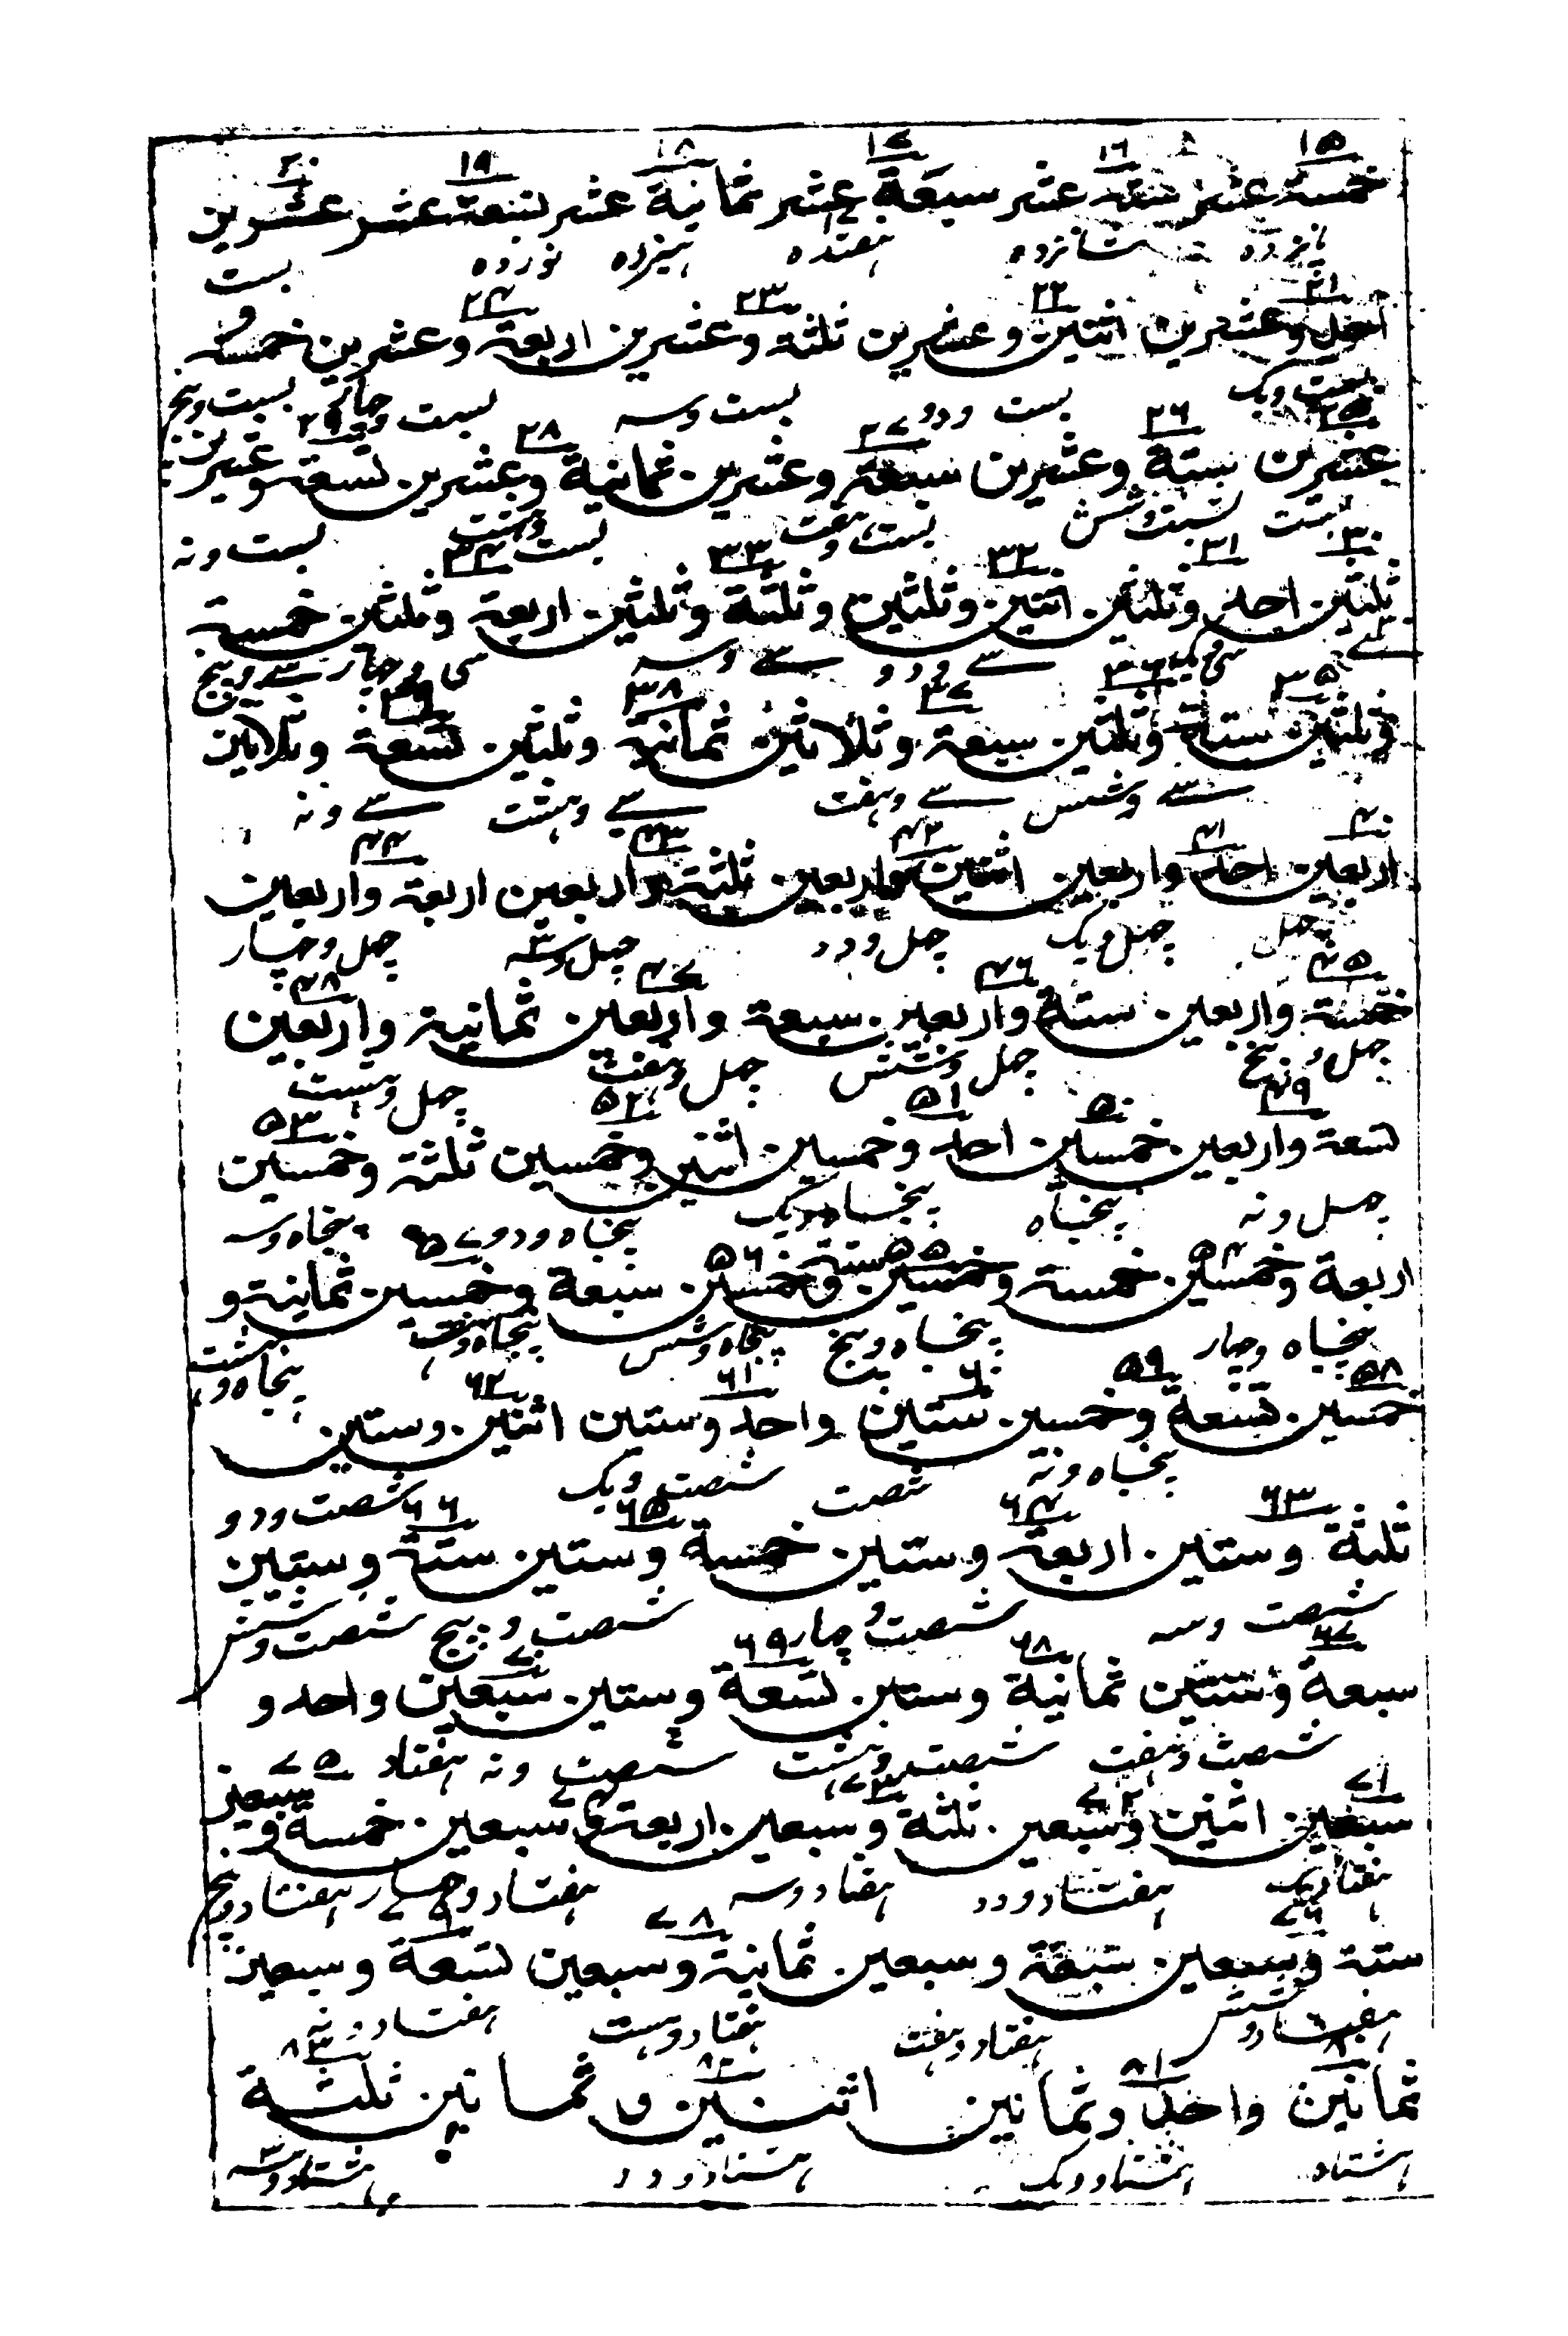 ۱۵ ۱۶ ۱۷ ۱۸ ۱۹ ۲۰
خمسة عشر ستة عشر سبعة عشر ثمانية عشر تسعة عشر عشرين
پانزده شانزده هفتده هیزده نوزده بست
۲۱ ۲۲ ۲۳ ۲۴
احد وعشرين اثنين وعشرين ثلثة وعشرين اربعة وعشرين خمسة و
بست ویک بست ودو بست وسه بست وچار بست وپنج
۲۵ ۲۶ ۲۷ ۲۸ ۲۹
عشرين ستة وعشرين سبعة وعشرين ثمانية وعشرين تسعة وعشرين
بست وشش بست وهفت بست وهشت بست ونه
۳۰ ۳۱ ۳۲ ۳۳ ۳۴
ثلثين احد وثلثين اثنين وثلثين وثلثة وثلثين اربعة وثلثين خمسة
سے سی ویک سے ودو سے وسه سی وچار سے وپنج
۳۵ ۳۶ ۳۷ ۳۸ ۳۹
وثلثين ستة وثلثين سبعة وثلاثين ثمانية وثلثين تسعة وثلاثين
سے وشش سے وهفت سے وهشت سے ونه
۴۰ ۴۱ ۴۲ ۴۳ ۴۴
اربعين احد واربعين اثنين واربعين ثلثة واربعين اربعة واربعين
چهل چهل ویک چهل ودو چهل وسه چهل وچهار
۴۵ ۴۶ ۴۷ ۴۸
خمسة واربعين ستة واربعين سبعة واربعين ثمانية واربعين
چهل وپنج چهل وشش چهل وهفت چهل وهشت
۴۹ ۵۰ ۵۱ ۵۲ ۵۳
تسعة واربعين خمسين احد وخمسين اثنين وخمسين ثلثة وخمسين
چهل ونه پنجاه پنجاه ویک پنجاه ودو پنجاه وسه
۵۴ ۵۵ ۵۶ ۵۷
اربعة وخمسين خمسة وخمسين ستة وخمسين سبعة وخمسين ثمانية و
پنجاه وچهار پنجاه وپنج پنجاه وشش پنجاه وهفت پنجاه وهشت
۵۸ ۵۹ ۶۰ ۶۱ ۶۲
خمسين تسعة وخمسين ستين واحد وستين اثنين وستين
پنجاه ونه شصت شصت ویک شصت ودو
۶۳ ۶۴ ۶۵ ۶۶
ثلثة وستين اربعة وستين خمسة وستين ستة وستين
شصت وسه شصت وچهار شصت وپنج شصت وشش
۶۷ ۶۸ ۶۹ ۷۰
سبعة وستين ثمانية وستين تسعة وستين سبعين واحد و
شصت وهفت شصت وهشت شصت ونه هفتاد
۷۱ ۷۲ ۷۳ ۷۴ ۷۵
سبعين اثنين وسبعين ثلثة وسبعين اربعة وسبعين خمسة وسبعين
هفتاد ویک هفتاد ودو هفتاد وسه هفتاد وچهار هفتاد وپنج
۷۶ ۷۸ ۷۹
ستة وسبعين سبعة وسبعين ثمانية وسبعين تسعة وسبعين
هفتاد وشش هفتاد وهفت هفتاد وهشت هفتاد ونه
۸۰ ۸۱ ۸۲ ۸۳
ثمانين واحد وثمانين اثنين و ثمانين ثلثة
هشتاد هشتاد ویک هشتاد ودو هشتاد وسه